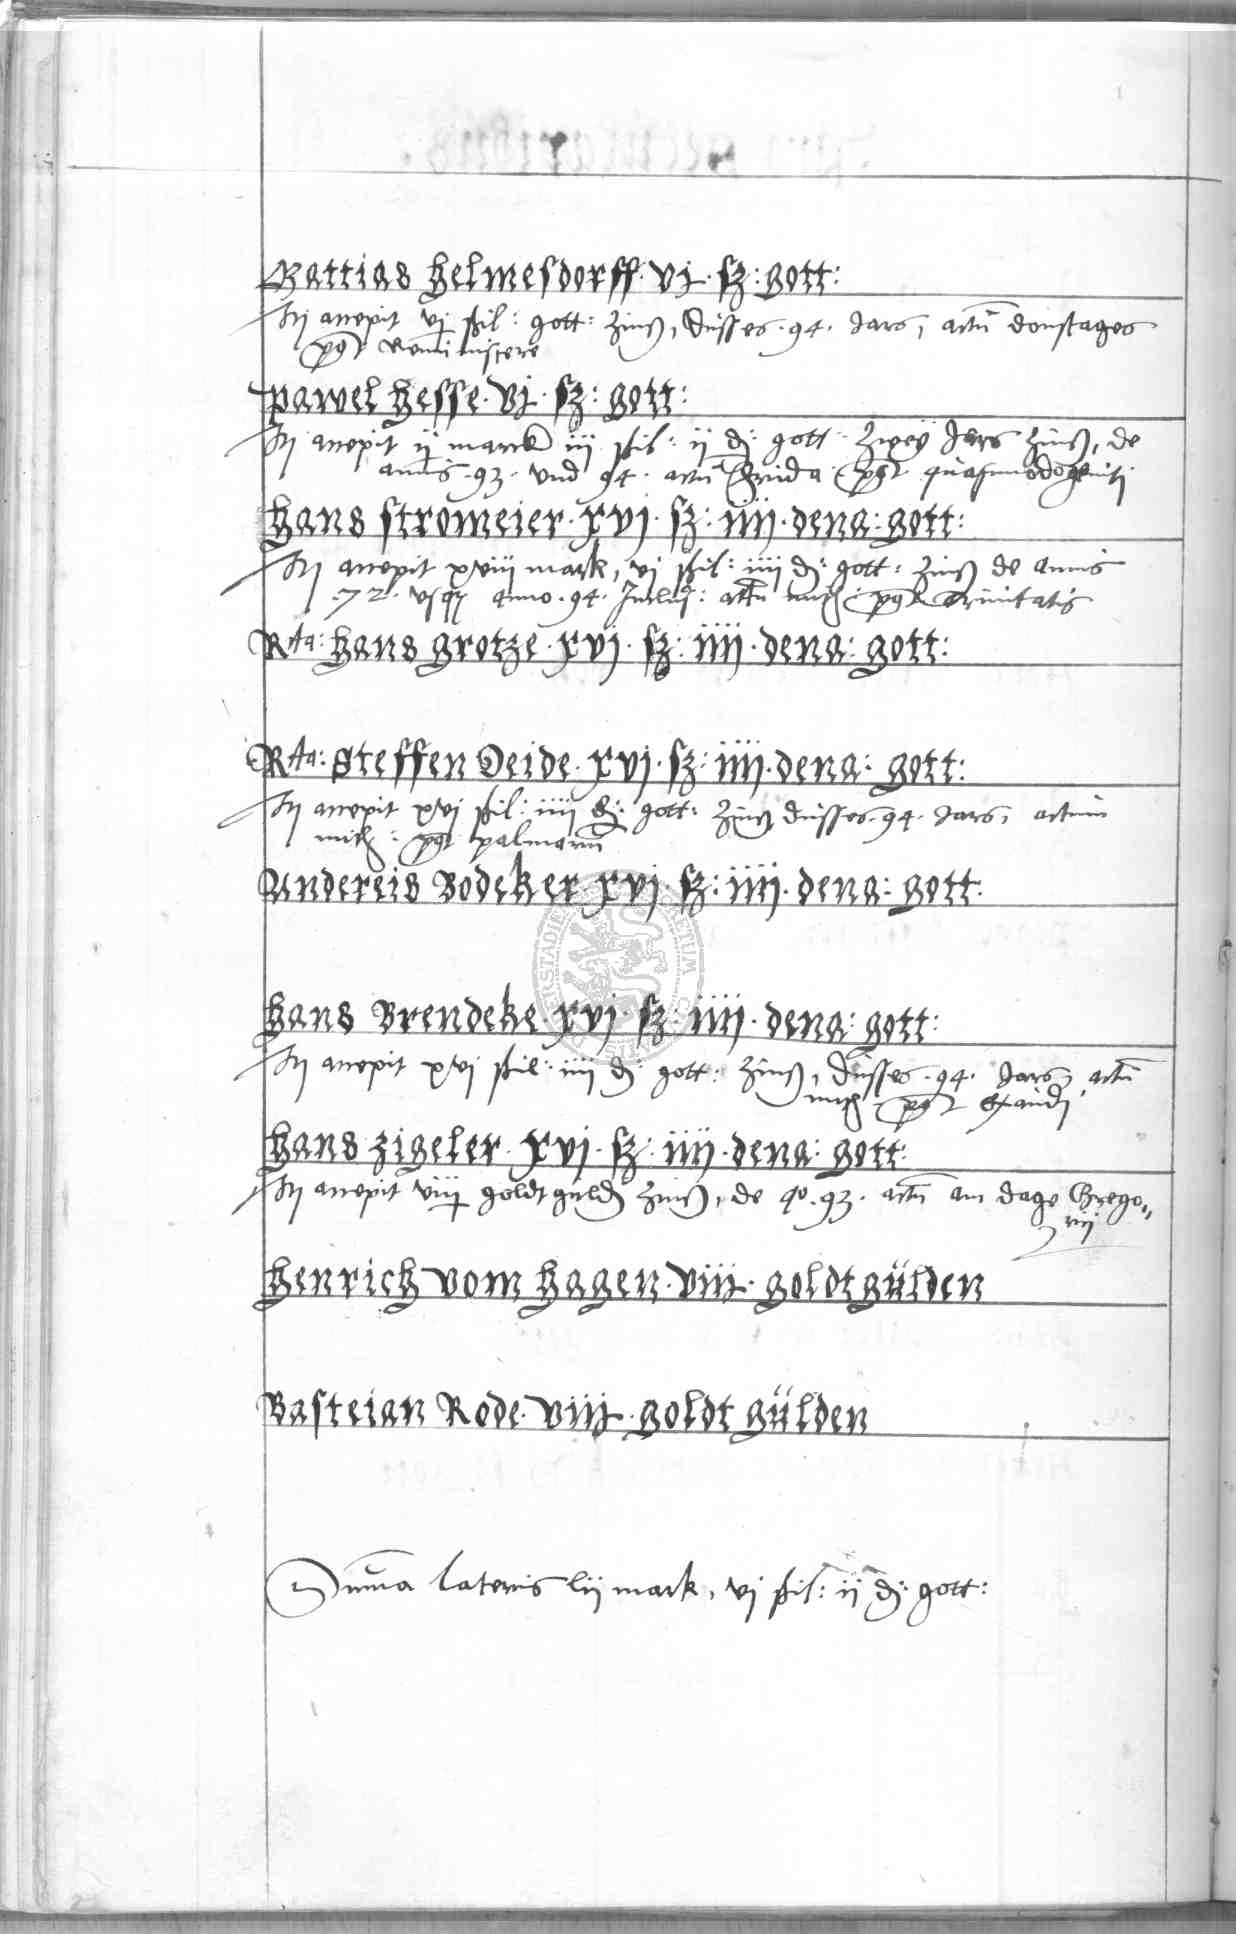 Mattias helmesdorff. vj. sz: gott:
Itj accepit vj schil: gott: Zinß, dusses. 94. Jars, actū donstages
post Reminiscere
pawel hesse. vj. sz: gott:
Itj accepit ij marck iij schil: ij d: gott: Zwey Jars Zinß, de
annis. 93. vnd 94. actū frida post quasimodogeniti
hans stromeier. xvj. sz: iiij. dena: gott:
Itj accepit xviij mark, vj schil: iiij d: gott: Zinß de annis
.72. vsqz anno. 94. Inclus: actū post trinitatis
Rta: hans grotze. xvj. sz: iiij. dena: gott:
Rta: Steffen Deide. xvj. sz: iiij. dena: gott:
Itj accepit xvj schil: iiij d: gott: Zinß dusses. 94. Jars, actum
mitw: post palmarū
Andereis Bodeker. xvj. sz: iiij. dena: gott.
hans Brendeke. xvj. sz: iiij. dena: gott:
Itj accepit xvj schil: iiij d: gott: Zinß, dusses. 94. Jars, actū
post Exaudi
hans zigeler. xvj. sz: iiij. dena: gott:
Itj accepit viij goldtguld Zinß, de ao. 93. actū am dage Grego„
rij
henrich vom hagen. viij. goldtgülden
Basteian Rode. viij. goldt gülden
Suma lateris lij mark, vj schil: ij d: gott: